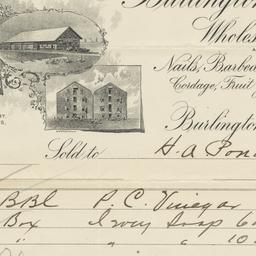 Burlington
Wholes
Nails, Barbed
Cordage, Fruit
Burlington
Sold to H. A. Pond
BBl P. C. Vinegar
Box Ivory Soap 60
" " " 10